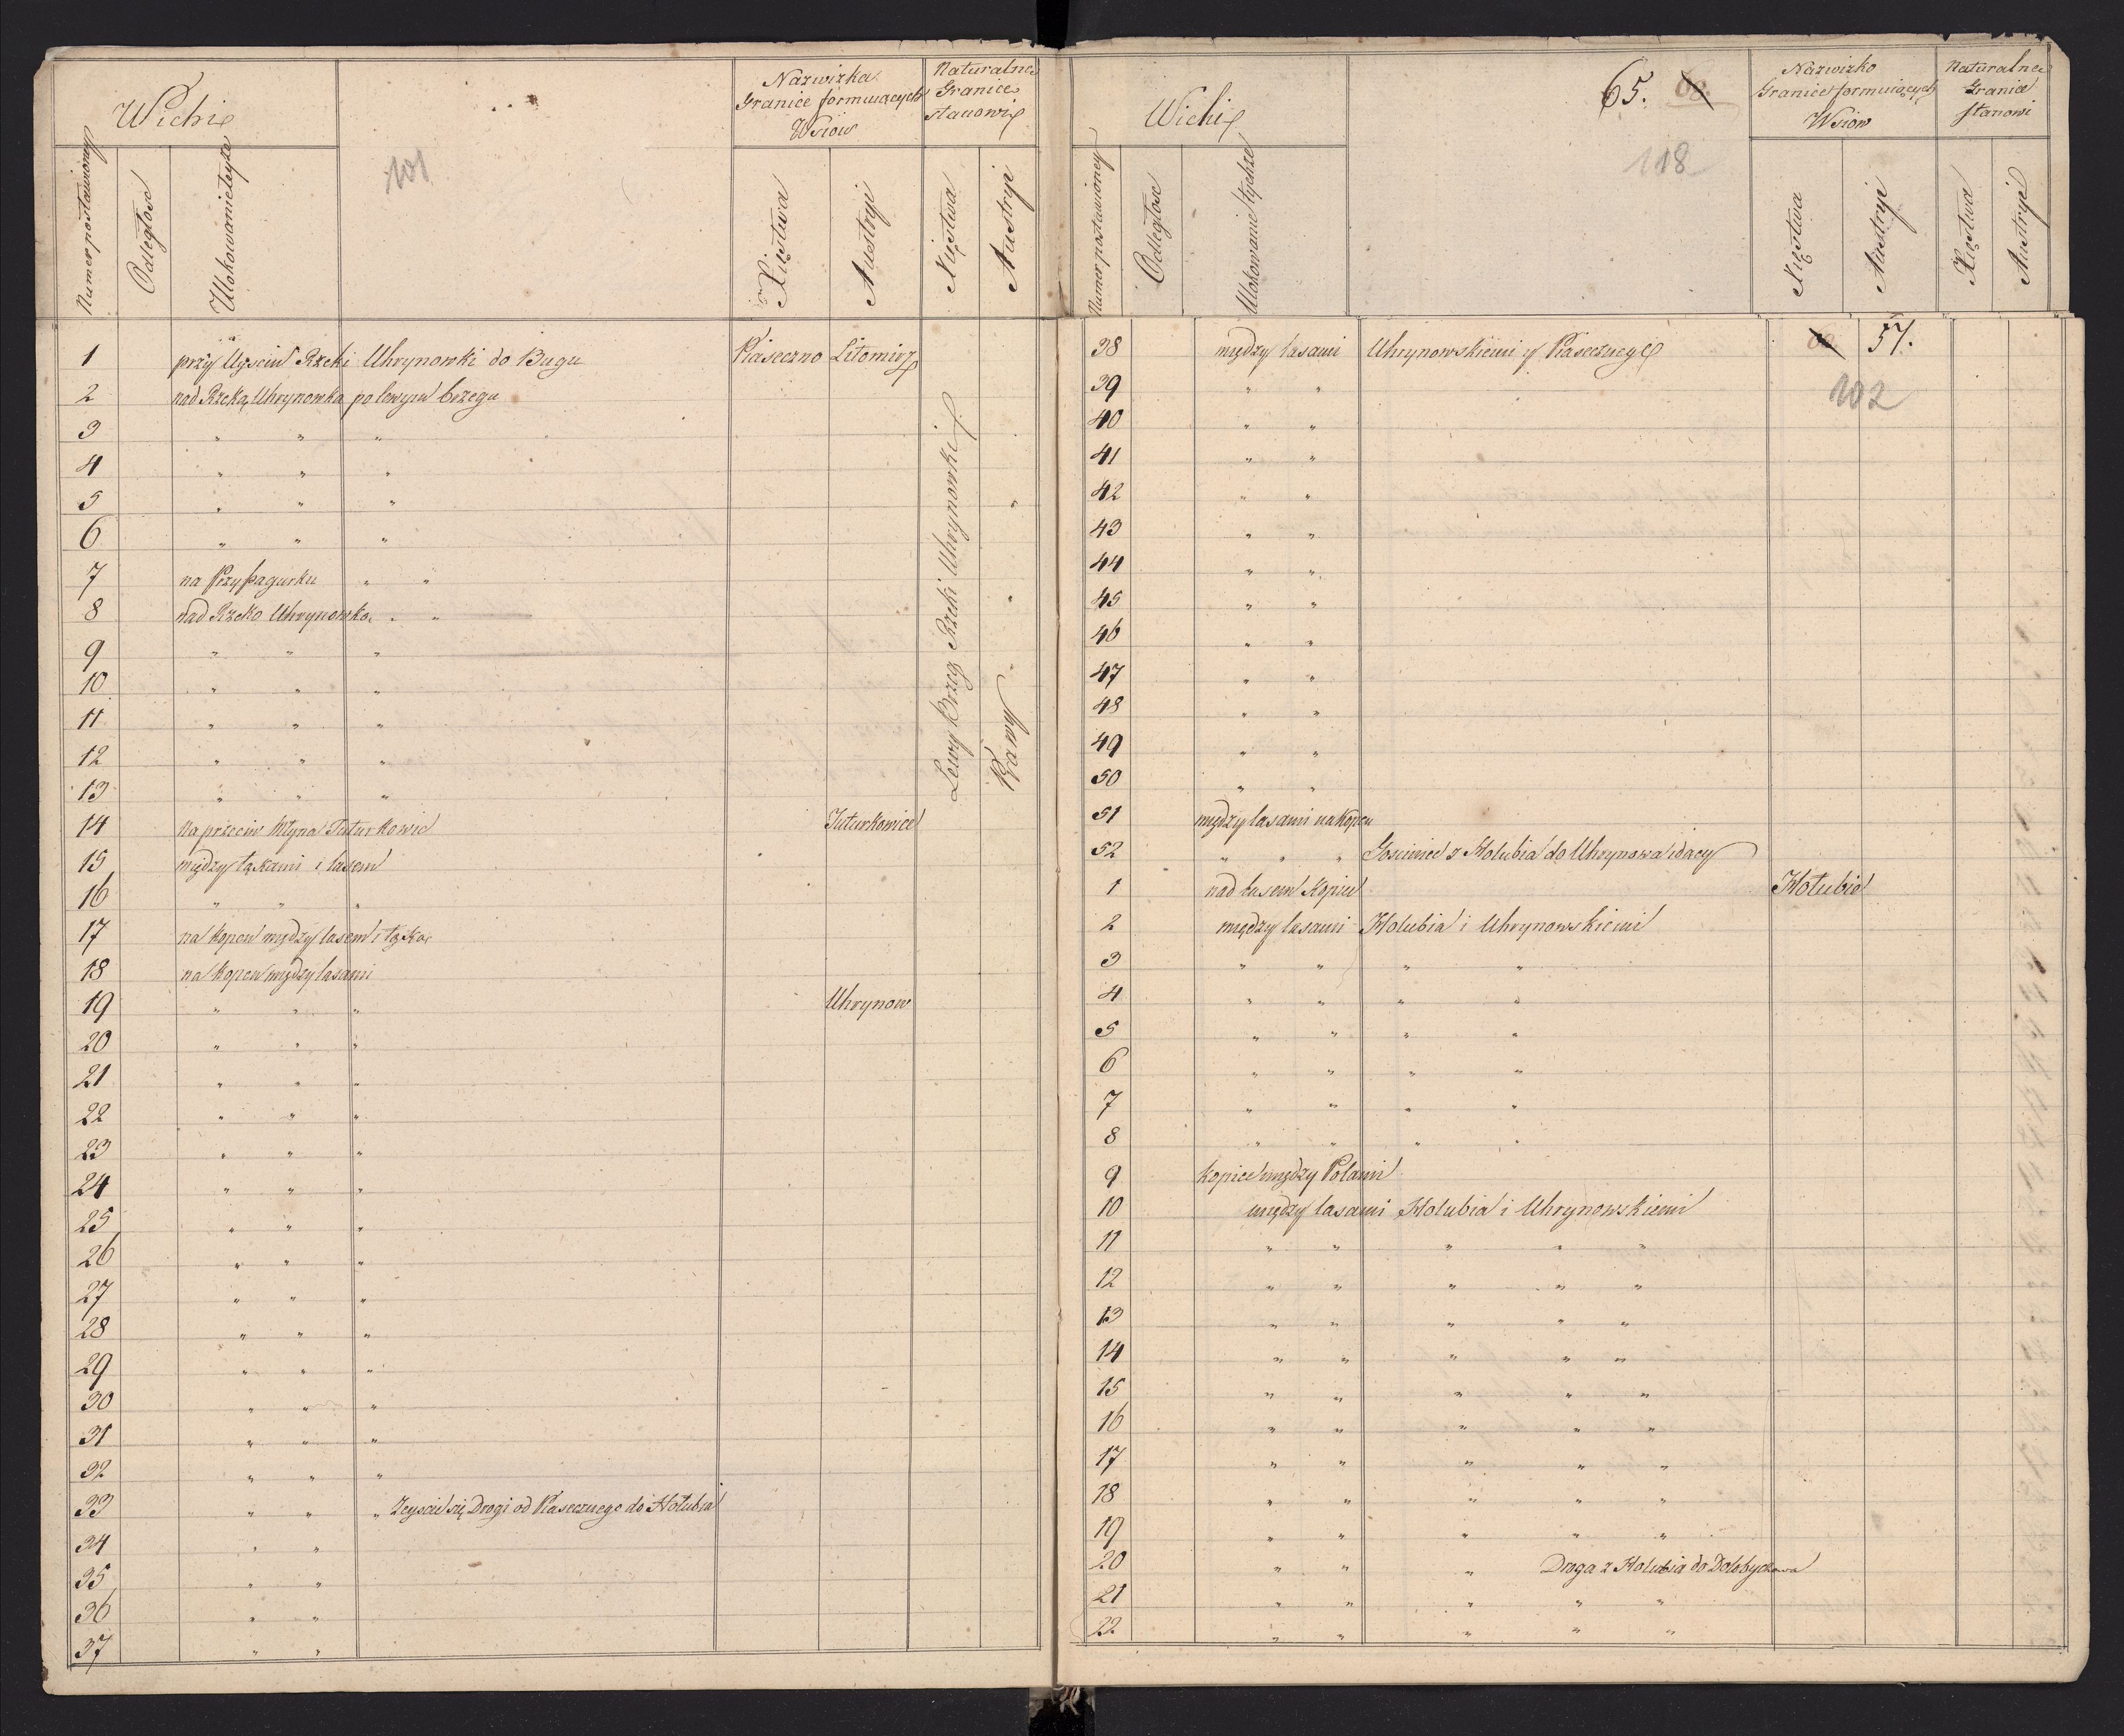 Wichi
101
Nazwiska
Granice formuiących
Wsiow
Naturalne
Granice
stanowi
Numer postawioney
Odległosc
Ulokowanie teyze
Xięstwa
Austryi
Xięstwa
Austryi
1 przy Uysciu Rzeki Uhrynowki do Bugu Piaseczno Litomirz
2 nad Rzeką Uhrynowka po lewym brzegu
3 " " "
4 " " "
5 " " "
6 " " "
7 na Przy pagurku " "
8 nad Rzeko Uhrynowka " "
9 " " "
10 " " "
11 " " "
12 " " "
13 " " "
Lewy Brzeg Rzeki Uhrynowki
Prawy
14 Na przeciw Młyna Tuturkowic Tuturkowice
15 między łąkami i lasem
16 " " "
17 na kopcu między lasem i łąką
18 na kopcu między lasami
19 " " " Uhrynow
20 " " "
21 " " "
22 " " "
23 " " "
24 " " "
25 " " "
26 " " "
27 " " "
28 " " "
29 " " "
30 " " "
31 " " "
32 " " "
33 " " " Zeyscie się Drogi od Piasecznego do Hołubia
34 " "
35 " "
36 " "
37 " "
Wichi
65.
118
Nazwisko
Granice formuiących
Wsiow
Naturalne
Granice
stanowi
Numer postawioney
Odległosc
Ulokowanie tychze
Xięstwa
Austryi
Xięstwa
Austryi
57.
102
38 między lasami Uhrynowskiemi y Piasecznego
39 " "
40 " "
41 " "
42 " "
43 " "
44 " "
45 " "
46 " "
47 " "
48 " "
49 " "
50 " "
51 między lasami na kopcu
52 " " " Gosciniec z Hołubia do Uhrynowa idacy
1 nad lasem kopiec Hołubie
2 między lasami Hołubia i Uhrynowskiemi
3 " " " "
4 " " " "
5 " " " "
6 " " " "
7 " " " "
8 " " " "
9 kopiec między Polami
10 między lasami Hołubia i Uhrynowskiemi
11 " " " " "
12 " " " " "
13 " " " " "
14 " " " " "
15 " " " " "
16 " " " " "
17 " " " " "
18 " " " " "
19 " " " " "
20 " " " Droga z Hołubia do Dołobyczowa
21 " " " " "
22 " " " " "